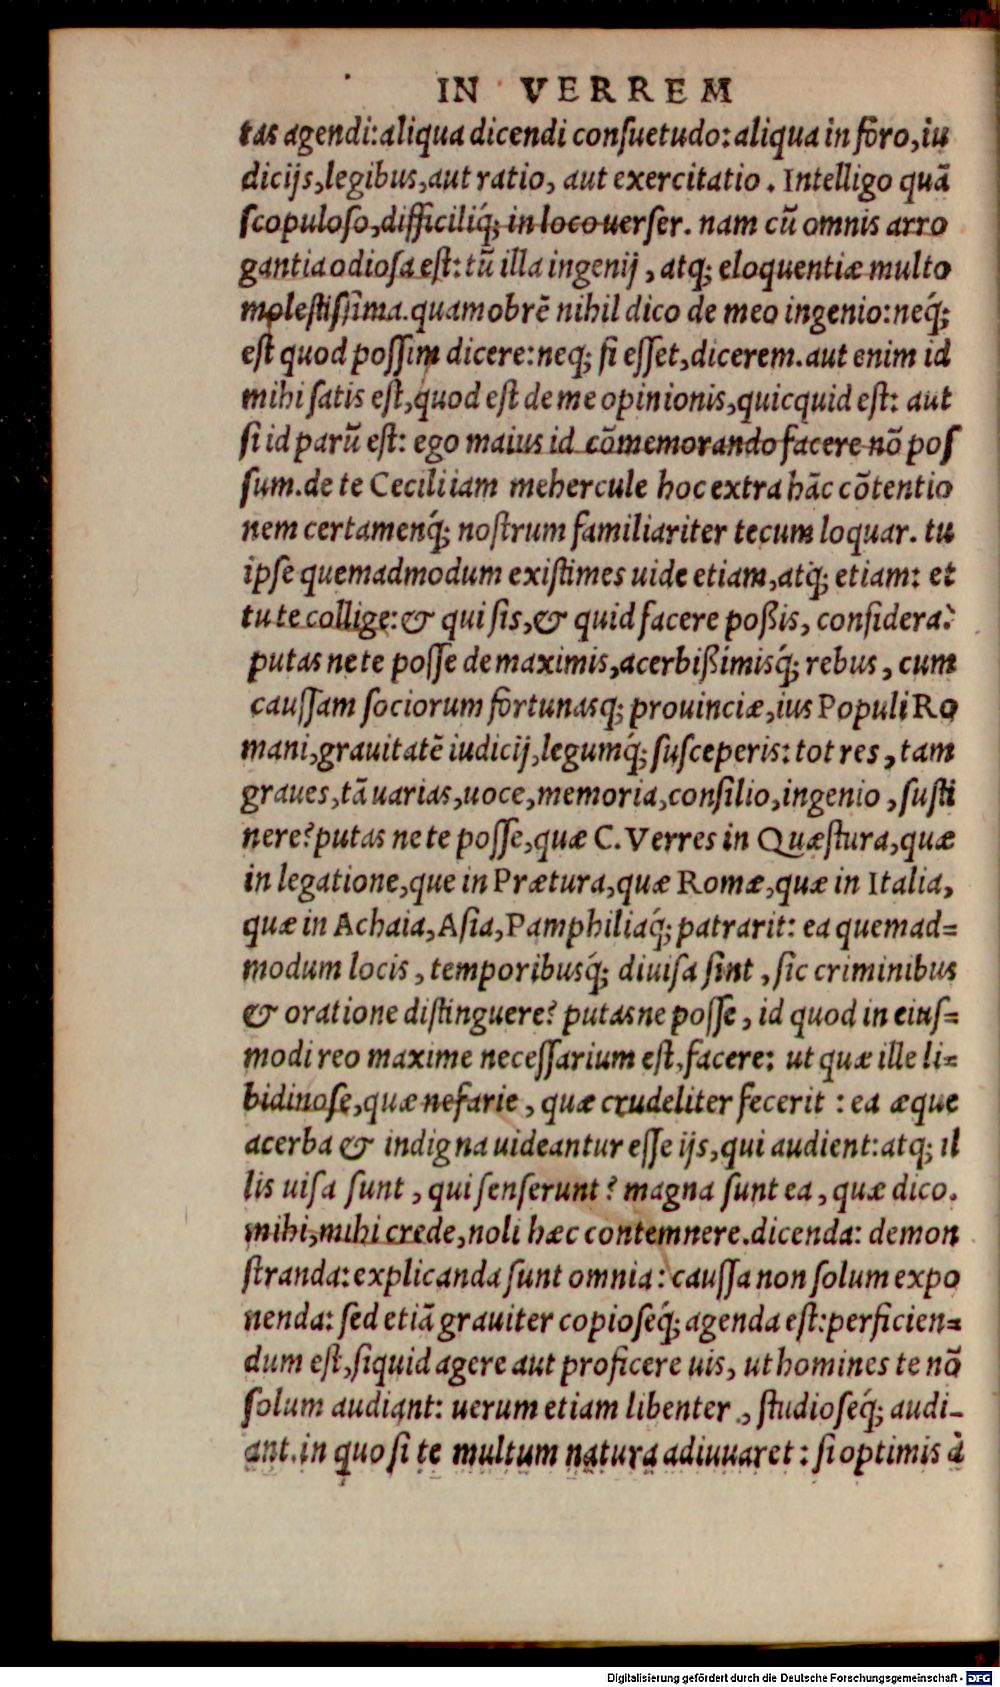 IN VERREM
tas agendi: aliqua dicendi consuetudo: aliqua in foro, iu
dicijs, legibus, aut ratio, aut exercitatio. Intelligo quã
scopuloso, difficiliq́; in loco uerser. nam cũ omnis arro
gantia odiosa est: tũ illa ingenij, atq; eloquentiæ multo
molestissima. quamobrẽ nihil dico de meo ingenio: neq́;
est quod possim dicere: neq; si esset, dicerem. aut enim id
mihi satis est, quod est de me opinionis, quicquid est: aut
si id parũ est: ego maius id cõmemorando facere nõ pos
sum. de te Cecili iam mehercule hoc extra hãc cõtentio
nem certamenq́; nostrum familiariter tecum loquar. tu
ipse quemadmodum existimes uide etiam, atq; etiam: et
tu te collige: & qui sis, & quid facere poßis, considera?
putas ne te posse de maximis, acerbißimisq́; rebus, cum
caussam sociorum fortunasq; prouinciæ, ius Populi Ro
mani, grauitatẽ iudicij, legumq́; susceperis: tot res, tam
graues, tã uarias, uoce, memoria, consilio, ingenio, susti
nere? putas ne te posse, quæ C. Verres in Quæstura, quæ
in legatione, que in Prætura, quæ Romæ, quæ in Italia,
quæ in Achaia, Asia, Pamphiliaq́; patrarit: ea quemad=
modum locis, temporibusq́; diuisa sint, sic criminibus
& oratione distinguere? putas ne posse, id quod in eius=
modi reo maxime necessarium est, facere: ut quæ ille li=
bidinose, quæ nefarie, quæ crudeliter fecerit: ea æque
acerba & indigna uideantur esse ijs, qui audient: atq; il
lis uisa sunt, qui senserunt? magna sunt ea, quæ dico.
mihi, mihi crede, noli hæc contemnere. dicenda: demon
stranda: explicanda sunt omnia: caussa non solum expo
nenda: sed etiã grauiter copioseq́; agenda est: perficien=
dum est, siquid agere aut proficere uis, ut homines te nõ
solum audiant: uerum etiam libenter, studioseq́; audi-
ant. in quo si te multum natura adiuuaret: si optimis à
Digitalisierung gefördert durch die Deutsche Forschungsgemeinschaft - DFG